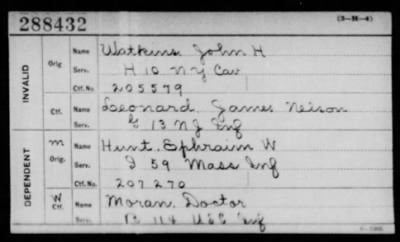 288432
(3-35-4)
INVALID
Orig.
Name Watkins, John H
Serv. H 10 N Y Cav
Ctf. No. 205579
Ctf.
Name Leonard, James Nelson
Serv. G 13 N J Inf
DEPENDENT
M
Orig.
Name Hunt, Ephraim W
Serv. I 59 Mass Inf
Ctf. No. 207270
W
Ctf.
Name Moran, Doctor
Serv. 114 USC Inf